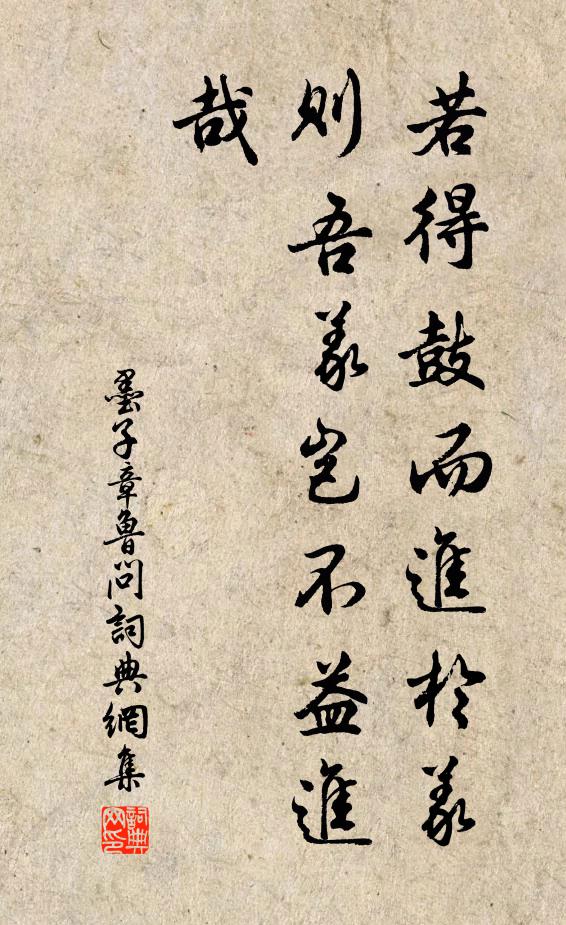 若得鼓而進於義
則吾義豈不益進
哉
墨子章魯問詞典網集
詞典
网印